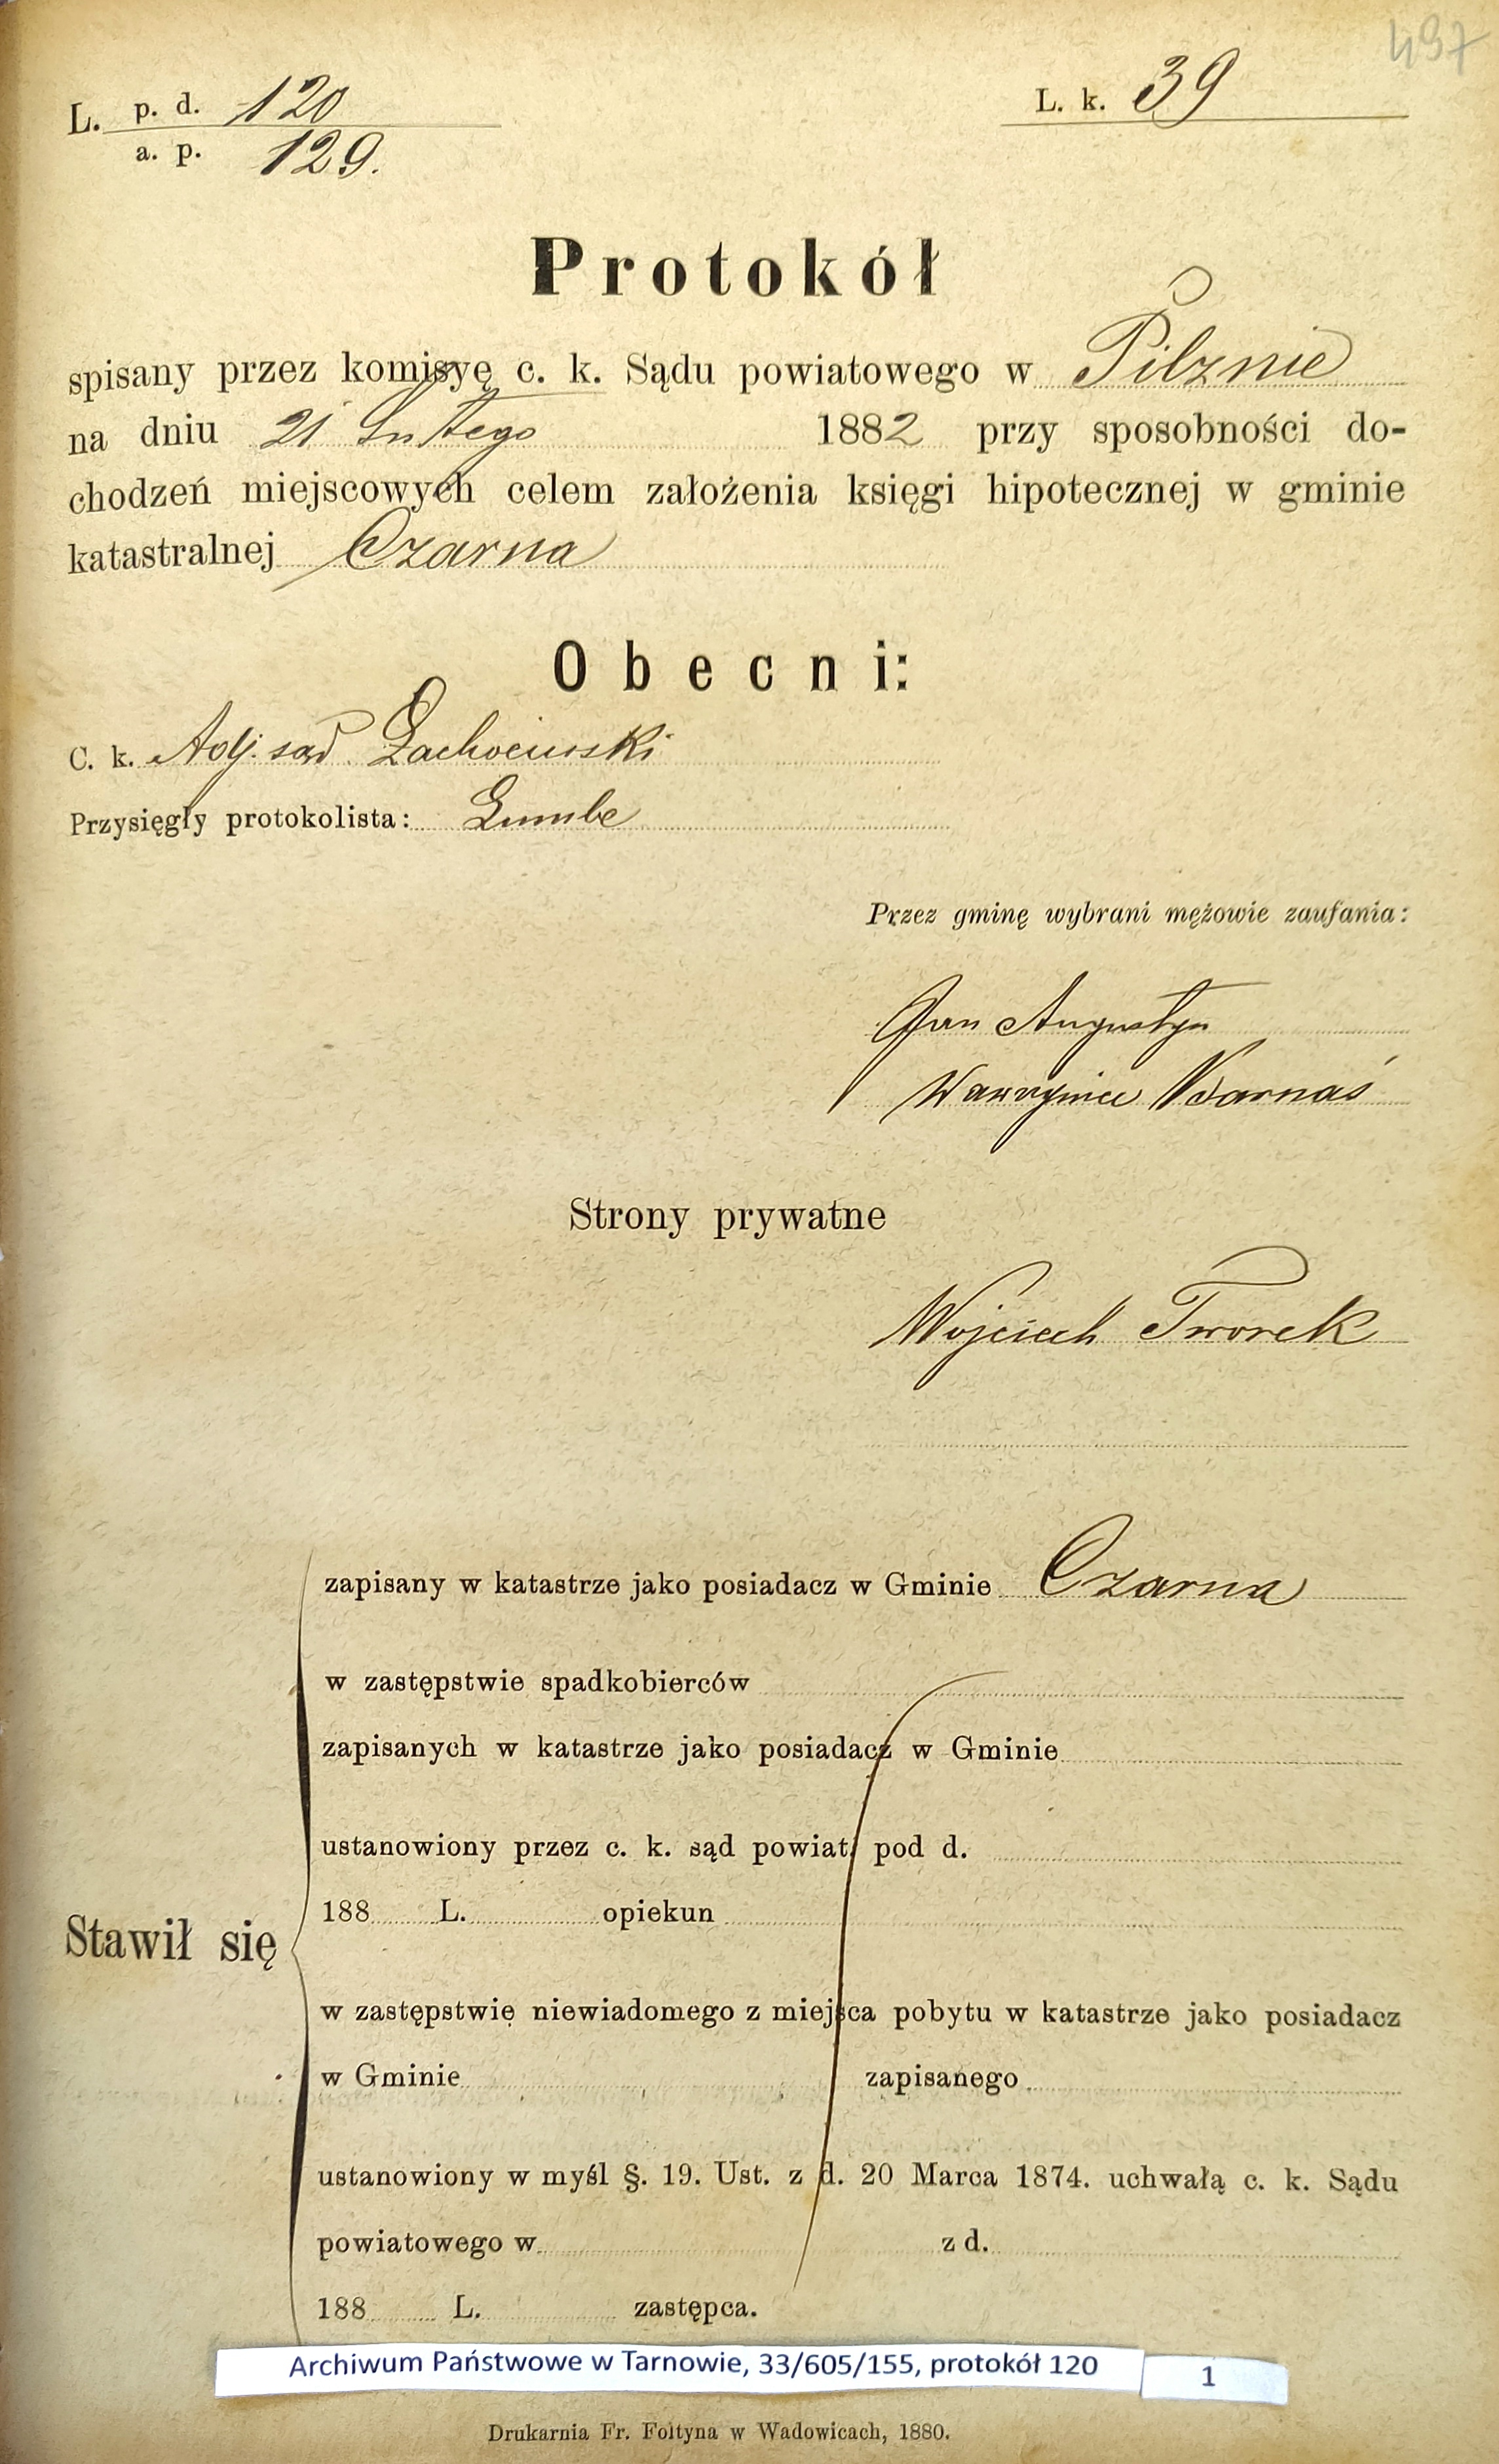 497
L. p. d. 120 L. k. 39
a. p. 129.
Protokół
spisany przez komisyę c. k. Sądu powiatowego w Pilznie
na dniu 21 Lutego 1882 przy sposobności do-
chodzeń miejscowych celem założenia księgi hipotecznej w gminie
katastralnej Czarna
Obecni:
C. k. Adj. sąd.
Przysięgły protokolista:
Przez gminę wybrani mężowie zaufania:
Jan Augustyn
Wawrzyniec Barnaś
Strony prywatne
Wojciech Tworek
zapisany w katastrze jako posiadacz w Gminie Czarna
w zastępstwie spadkobierców
zapisanych w katastrze jako posiadacz w Gminie
ustanowiony przez c. k. sąd powiat. pod d.
188 L. opiekun
Stawił się
w zastępstwie niewiadomego z miejsca pobytu w katastrze jako posiadacz
w Gminie zapisanego
ustanowiony w myśl §. 19. Ust. z d. 20 Marca 1874. uchwałą c. k. Sądu
powiatowego w z d.
188 L. zastępca.
Archiwum Państwowe w Tarnowie, 33/605/155, protokół 120 1
Drukarnia Fr. Foltyna w Wadowicach, 1880.